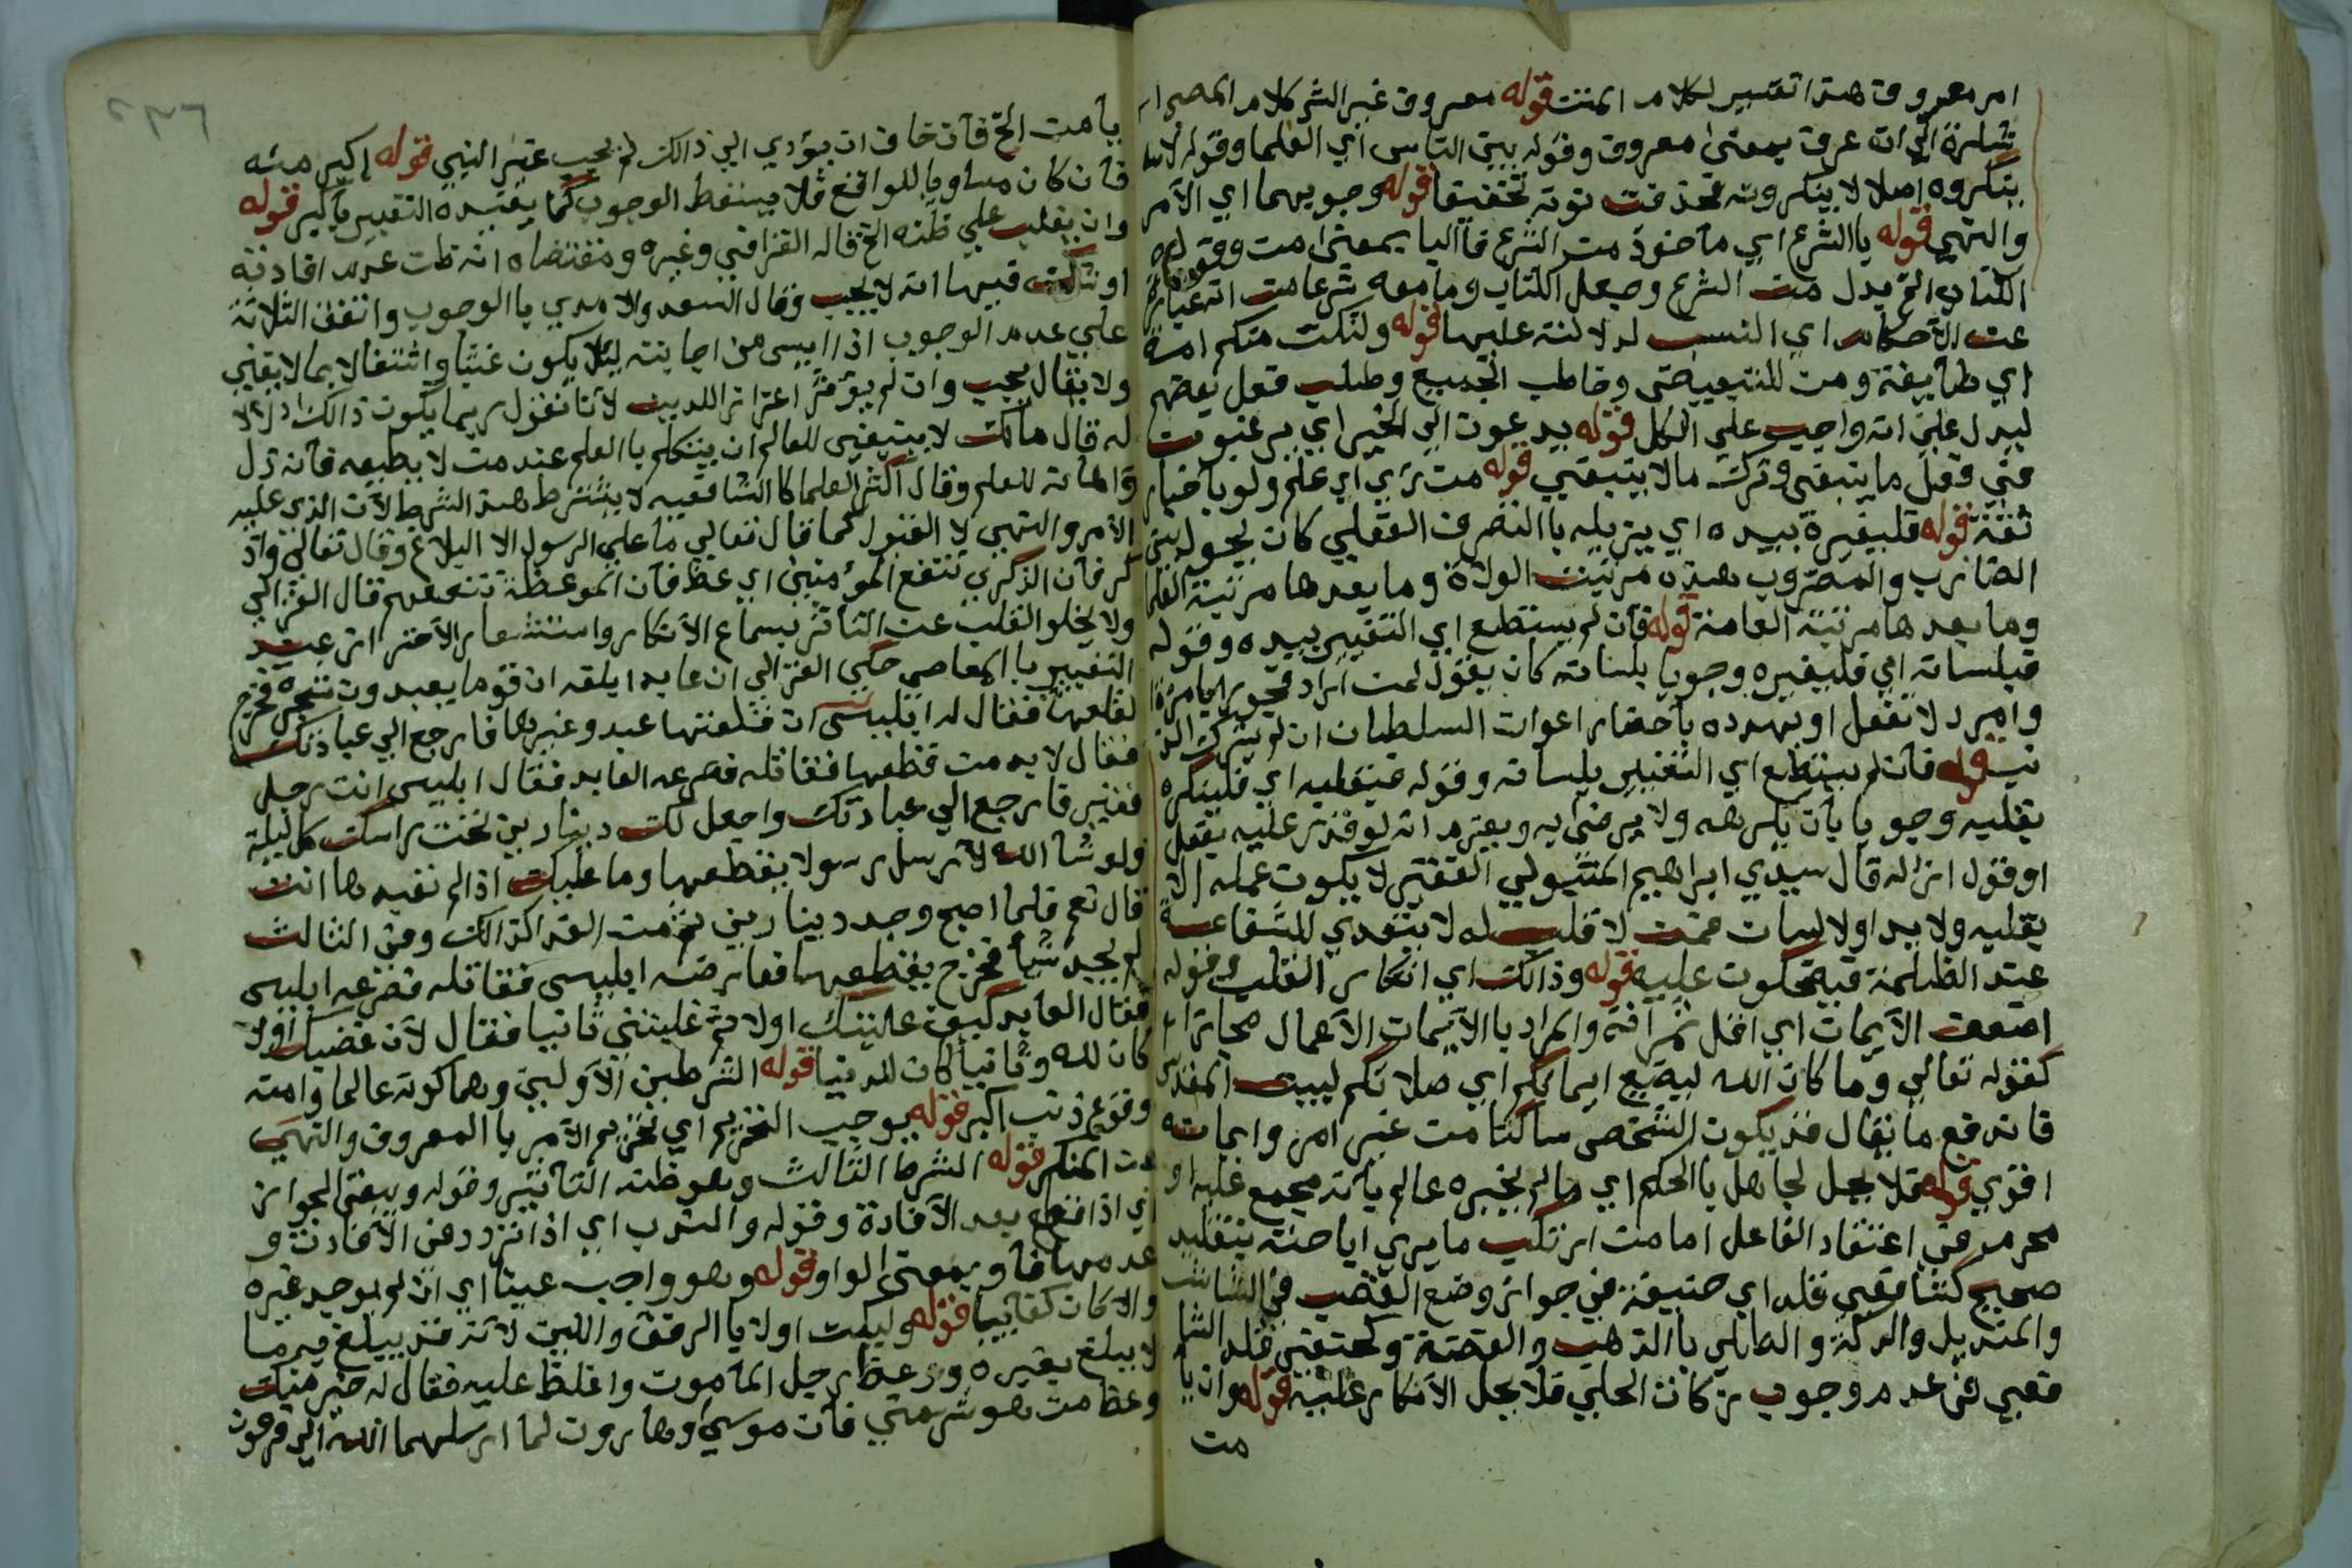 امر معروف هذا تفسير لكلام المتن قوله معروف غير الشر كلام المص
شارة الي انه عرف بمعني معروف وقوله بين الناس اي العلما وقوله
ينكروه اصلا لا ينكرونه فحذفت نونه تخفيفا قوله وجوبهما اي الامر
والنهي قوله باالشرع اي ماخوذ من الشرع فاالبا بمعني من وقوله
الكتاب الخ بدل من الشرع وجعل الكتاب وما معه شرعا من انه عبارة
عن الاحكام اي النسب لدلالته عليها قوله ولتكن منكم امة
اي طايفة ومن للتبعيض وخاطب الجميع وطلب فعل بعضهم
ليدل علي انه واجب علي الكل قوله يدعون الي الخير اي يرغبون
في فعل ما ينبغي وترك مالا ينبغي قوله من رءي اي علم ولو باخبار
ثقة قوله فليغيره بيده اي يزيله باالتصرف الفعلي كان يحول بين
الضارب والمضروب وهذه مرتبة الولاة وما بعدها مرتبة العلما
وما بعدها مرتبة العامة قوله فان لم يستطع اي التغيير بيده وقوله
فبلسانه اي فليغيره وجوبا بلسانه كان يقول لمن اراد فجورا بامرءة
وامرد لا تفعل او يهدده باحضار اعوان السلطان ان لم يترك
قوله فان لم يستطع اي التغيير بلسانه وقوله فبقلبه اي فلينكره
بقلبه وجوبا بان يكرهه ولا يرضي به ويعزم انه لو قدر عليه بفعل
او قول ازاله قال سيدي ابراهيم المتبولي الفقير لا يكون عمله الا
بقلبه ولا يد اولا لسان فمن لا قلب له لا يتعدي للشفاعة
عند الظلمة فيضحكون عليه قوله وذالك اي انكار القلب وقوله
اضعف الايمان اي اقل ثمرافة والمراد باالايمان الاعمال مجازا
كقوله تعالي وما كان الله ليضيع ايمانكم اي صلاتكم لبيت المقدس
فاندفع ما يقال قد يكون الشخص ساكنا من غير امر وايمانه
اقوي قوله فلا يحل لجاهل باالحكم اي ما لم يخبره عالم بانه مجمع عليه او
محرم في اعتقاد الفاعل اما من ارتكب ما يري اباحته بتقليد
صحيح كشافعي قلد ابي حنيفة في جواز وضع القضب في الشاشة
والمنديل والدكة والطالي باالذهب والفضة وكحنفي قلد الشا
فعي في عدم وجوب زكات الحلي فلا يحل الانكار عليه قوله وان يا
من
يامن الخ فان خاف ان يؤدي الي ذالك لم يجب عين النهي قوله اكبر منه
فان كان مساويا للواقع فلا يسقط الوجوب كما يفيده التعبير باكبر قوله
وان يغلب علي ظنه الخ قاله القرافي وغيره ومقتضاه انه ظن عدم افادته
او شك فيها انه لا يجب وقال السعد والامدي باالوجوب واتفق الثلاثة
علي عدم الوجوب اذا ايس من اجابته ليلا يكون عبثا واشتغالا بما لا يعني
ولا يقال يجب وان لم يؤثر اعتزاز للدين لانا نقول ربما يكون ذالك
له قال مالك لا ينبغي للعالم ان يتكلم باالعلم عند من لا يطيعه فانه ذل
واهانه للعلم وقال اكثر العلما كاالشافعيه لا يشترط هذا الشرط لان الذي عليه
الامر والنهي لا القبول كما قال تعالي ما علي الرسول الا البلاغ وقال تعالي وذ
كر فان الذكري تنفع المؤمنين اي عظ فان الموعظة تنفعهم قال الغزالي
ولا يخلو القلب عن التاثر بسماع الانكار واستشعار الاحتراز عند
التعيير باالمعاصي حكي الغزالي ان عابدا بلغه ان قوما يعبدون شجرة فخرج
لقلعها فقال له ابليس ان قلعتها عبدو غيرها فارجع الي عبادتك
فقال لا بد من قطعها فقاتله فصرعه العابد فقال ابليس انت رجل
فقير فارجع الي عبادتك واجعل لك دينارين تحت راسك كل ليلة
ولو شا الله لارسل رسولا يقطعها وما عليك اذا لم تعبدها انت
قال نعم فلما اصبح وجد دينارين ثم من الغد كذالك وفي الثالث
لم يجد شيا فخرج يقطعها فعارضه ابليس فقاتله فصرعه ابليس
فقال العابد كيف غلبتك اولا ثم غلبتني ثانيا فقال لان غضبك اولا
كان لله وثانيا كان للدنيا قوله الشرطين الاولين وهما كونه عالما وامنه
وقوع ذنب اكبر قوله يوجب التحريم اي تحريم الامر باالمعروف والنهي
عن المنكر قوله الشرط الثالث وهو ظنه التاثير وقوله ويبقي الجواز
اي اذا قطع بعد الافادة وقوله والندب اي اذا تردد في الافادة و
عدمها فاو بمعني الواو قوله وهو واجب عينا اي ان لم يوجد غيره
والا كان كفاييا قوله وليكن اولا باالرفق واللين لانه قد يبلغ فيه ما
لا يبلغ بغيره ووعظ رجل المامون واغلظ عليه فقال له خير منك
وعظ من هو شر مني فان موسي وهارون لما ارسلهما الله الي فرعون